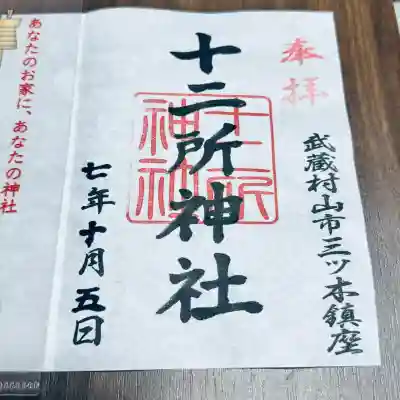 奉拝
武蔵村山市三ツ木鎮座
十二所神社
十二所
神社
七年十月五日
あなたのお家に、あなたの神社